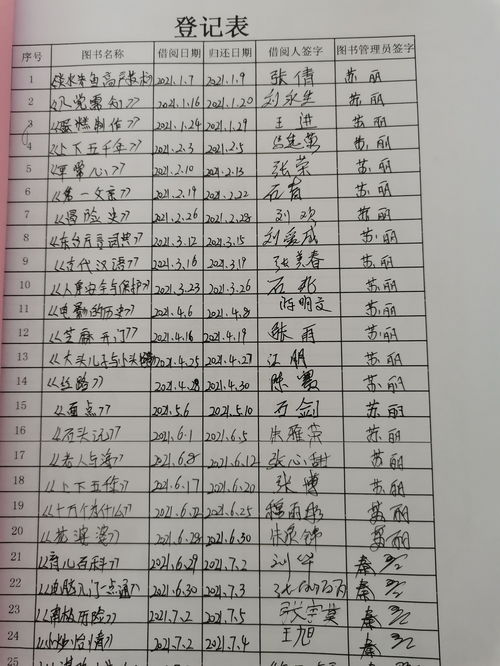 登记表
序号 图书名称 借阅日期 归还日期 借阅人签字 图书管理员签字
1 《淡水鱼高产技术》 2021.1.7 2021.1.9 张倩 苏丽
2 《入党需知》 2021.1.16 2021.1.20 刘永生 苏丽
3 《蛋糕制作》 2021.1.24 2021.1.29 王进 苏丽
4 《上下五千年》 2021.2.3 2021.2.5 苏丽
5 2021.2.10 2021.2.13 张荣 苏丽
6 《第一父亲》 2021.2.19 2021.2.22 石青 苏丽
7 2021.2.26 2021.2.28 刘欢 苏丽
8 《东台方言词典》 2021.3.12 2021.3.15 刘爱成 苏丽
9 《古代汉语》 2021.3.16 2021.3.19 张美春 苏丽
10 《人身安全与保护》 2021.3.23 2021.3.26 苏丽
11 《电影的历史》 2021.4.6 2021.4.8 陈明文 苏丽
12 《芝麻开门》 2021.4.16 2021.4.19 张雨 苏丽
13 《大头儿子与小头爸爸》 2021.4.25 2021.4.27 江明 苏丽
14 《丝路》 2021.4.28 2021.4.30 陈霞 苏丽
15 《西点》 2021.5.6 2021.5.10 石剑 苏丽
16 《石头记》 2021.6.1 2021.6.5 朱雁荣 苏丽
17 《老人与海》 2021.6.8 2021.6.12 张心甜 苏丽
18 《上下五千年》 2021.6.17 2021.6.20 张博 苏丽
19 《十万个为什么》 2021.6.22 2021.6.25 程雨彤 苏丽
20 《花婆婆》 2021.6.28 2021.6.30 苏丽
21 《育儿百科》 2021.6.29 2021.7.2 刘华 秦
22 《电脑入门一点通》 2021.6.30 2021.7.3 秦
23 《南极历险》 2021.7.2 2021.7.5 张宇莫 秦
24 2021.7.2 2021.7.4 王旭 秦
25